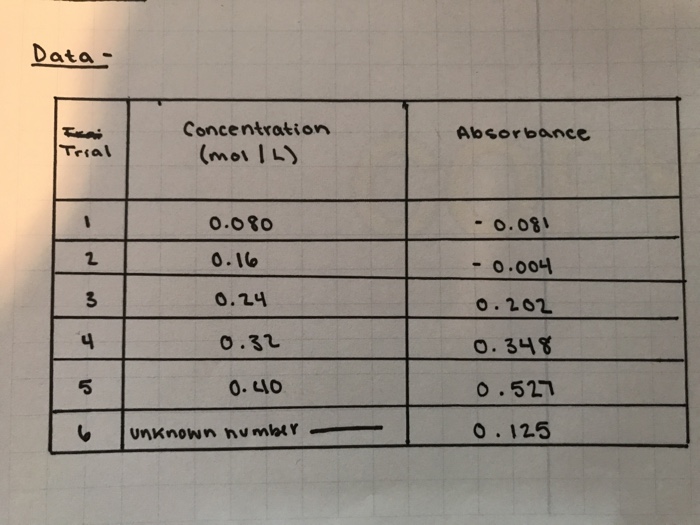 Data -
Trial
Concentration
(mol/L)
Absorbance
1 0.080 - 0.081
2 0.16 - 0.004
3 0.24 0.202
4 0.32 0.348
5 0.40 0.527
6 unknown number 0.125